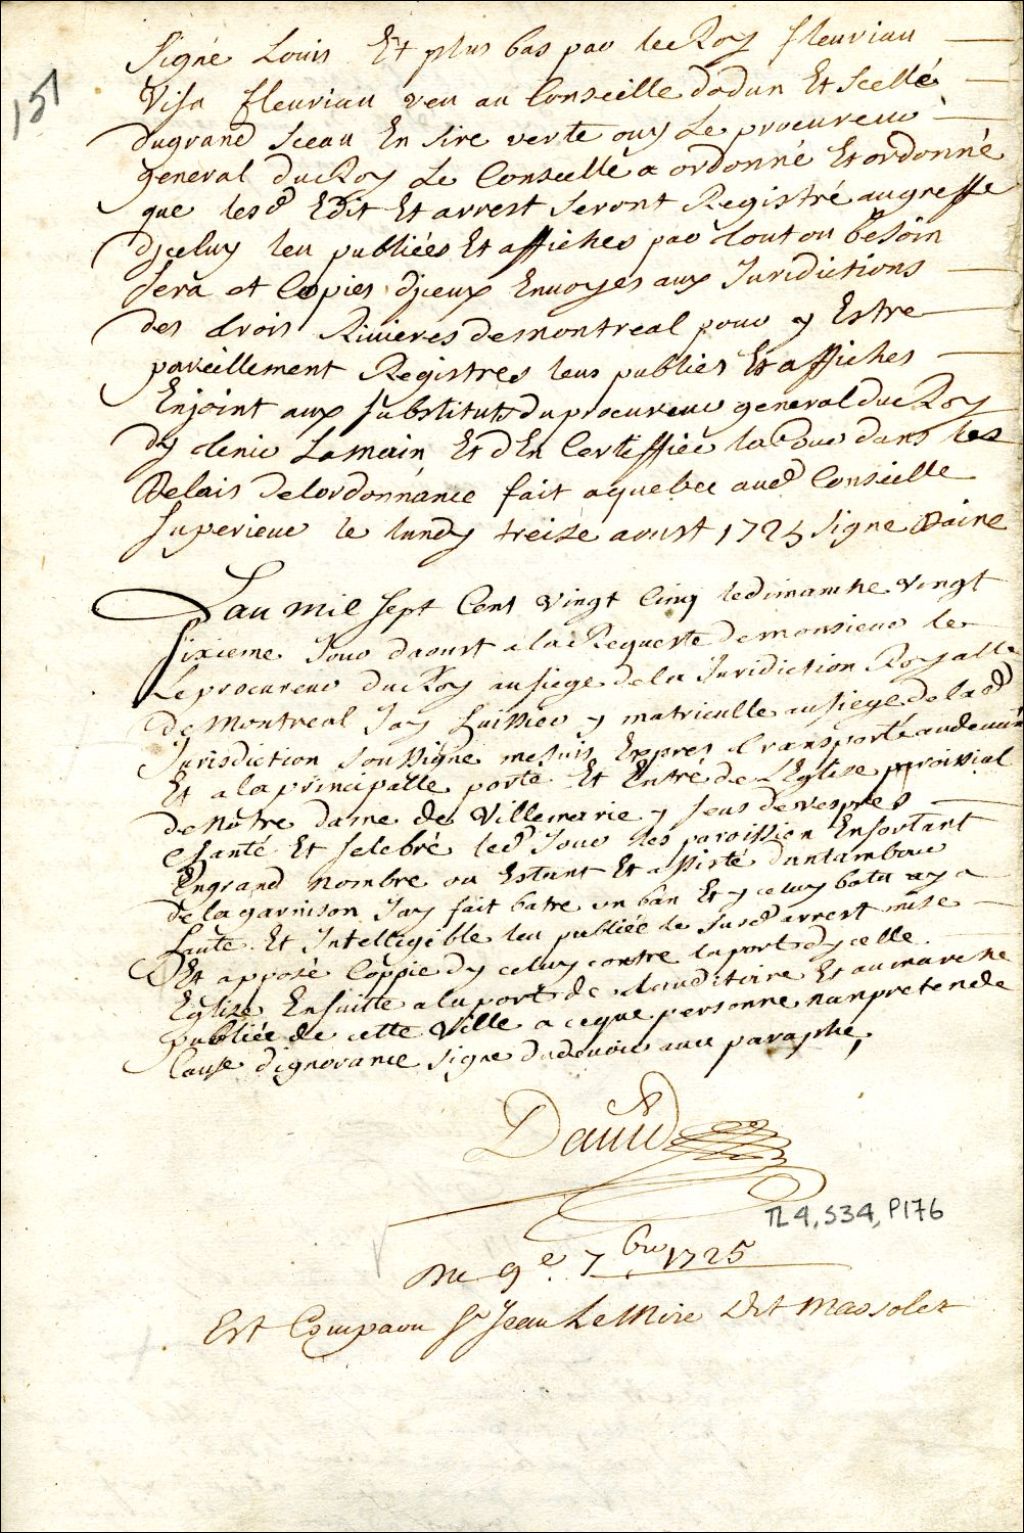 151
Signé Louis Et plus bas par le Roy fleuriau
Visa fleuriau veu au Conseille dodun Et Scellé
dugrand Sceau En sire verte ouy Le procureur
general du Roy Le Conseille a ordonné Et ordonne
que lesd Edit Et arrest Seront Registré augreffe
dyceluy leu publiées Et affiches par tout ou besoin
Sera et Copies dyceux Envoyes aux Juridictions
des trois Rivieres de montreal pour y Estre
pareillement Registres leus publies Et affiches
Enjoint aux substituts du procureur general du Roy
dy tenir Lamain Et dEn Certiffier la Cour dans les
Delais delordonnance fait aquebec aud Conseille
superieur le lundy treize aoust 1725 Signe Daine
Lan mil sept Cent vingt Cinq ledimanche vingt
sixieme Jour daoust ala Requeste de monsieur le
Le procureur du Roy ausiege de la Juridiction Royalle
de Montreal Jay huissier y matriculle ausiege de lad
Jurisdiction Soussigne mesuis Expres transporté audevan
Et a la principalle porte Et Entré de LEglise paroissial
de Nôtre dame de Villemarie y seus de vespres
Chanté Et selebré led Jour les paroissien Ensortant
Engrand nombre ou Estant Et assisté duntambour
de la garnison Jay fait batre un ban Et yceluy batu
haute Et Intelligible leu publiée le susd arrest mise
Et apposé Coppie dyceluy contre laporte dycelle
Eglise Ensuitte a laporte de laudittoire Et aumarche
publiée de cette Ville aceque personne nanpretende
Cause dignorance signe dudevoir avec paraphe,
David
TL4, S34, P176
Du 9e. 7bre 1725
Est Comparu Sr Jean LeMire Dit Marsolet